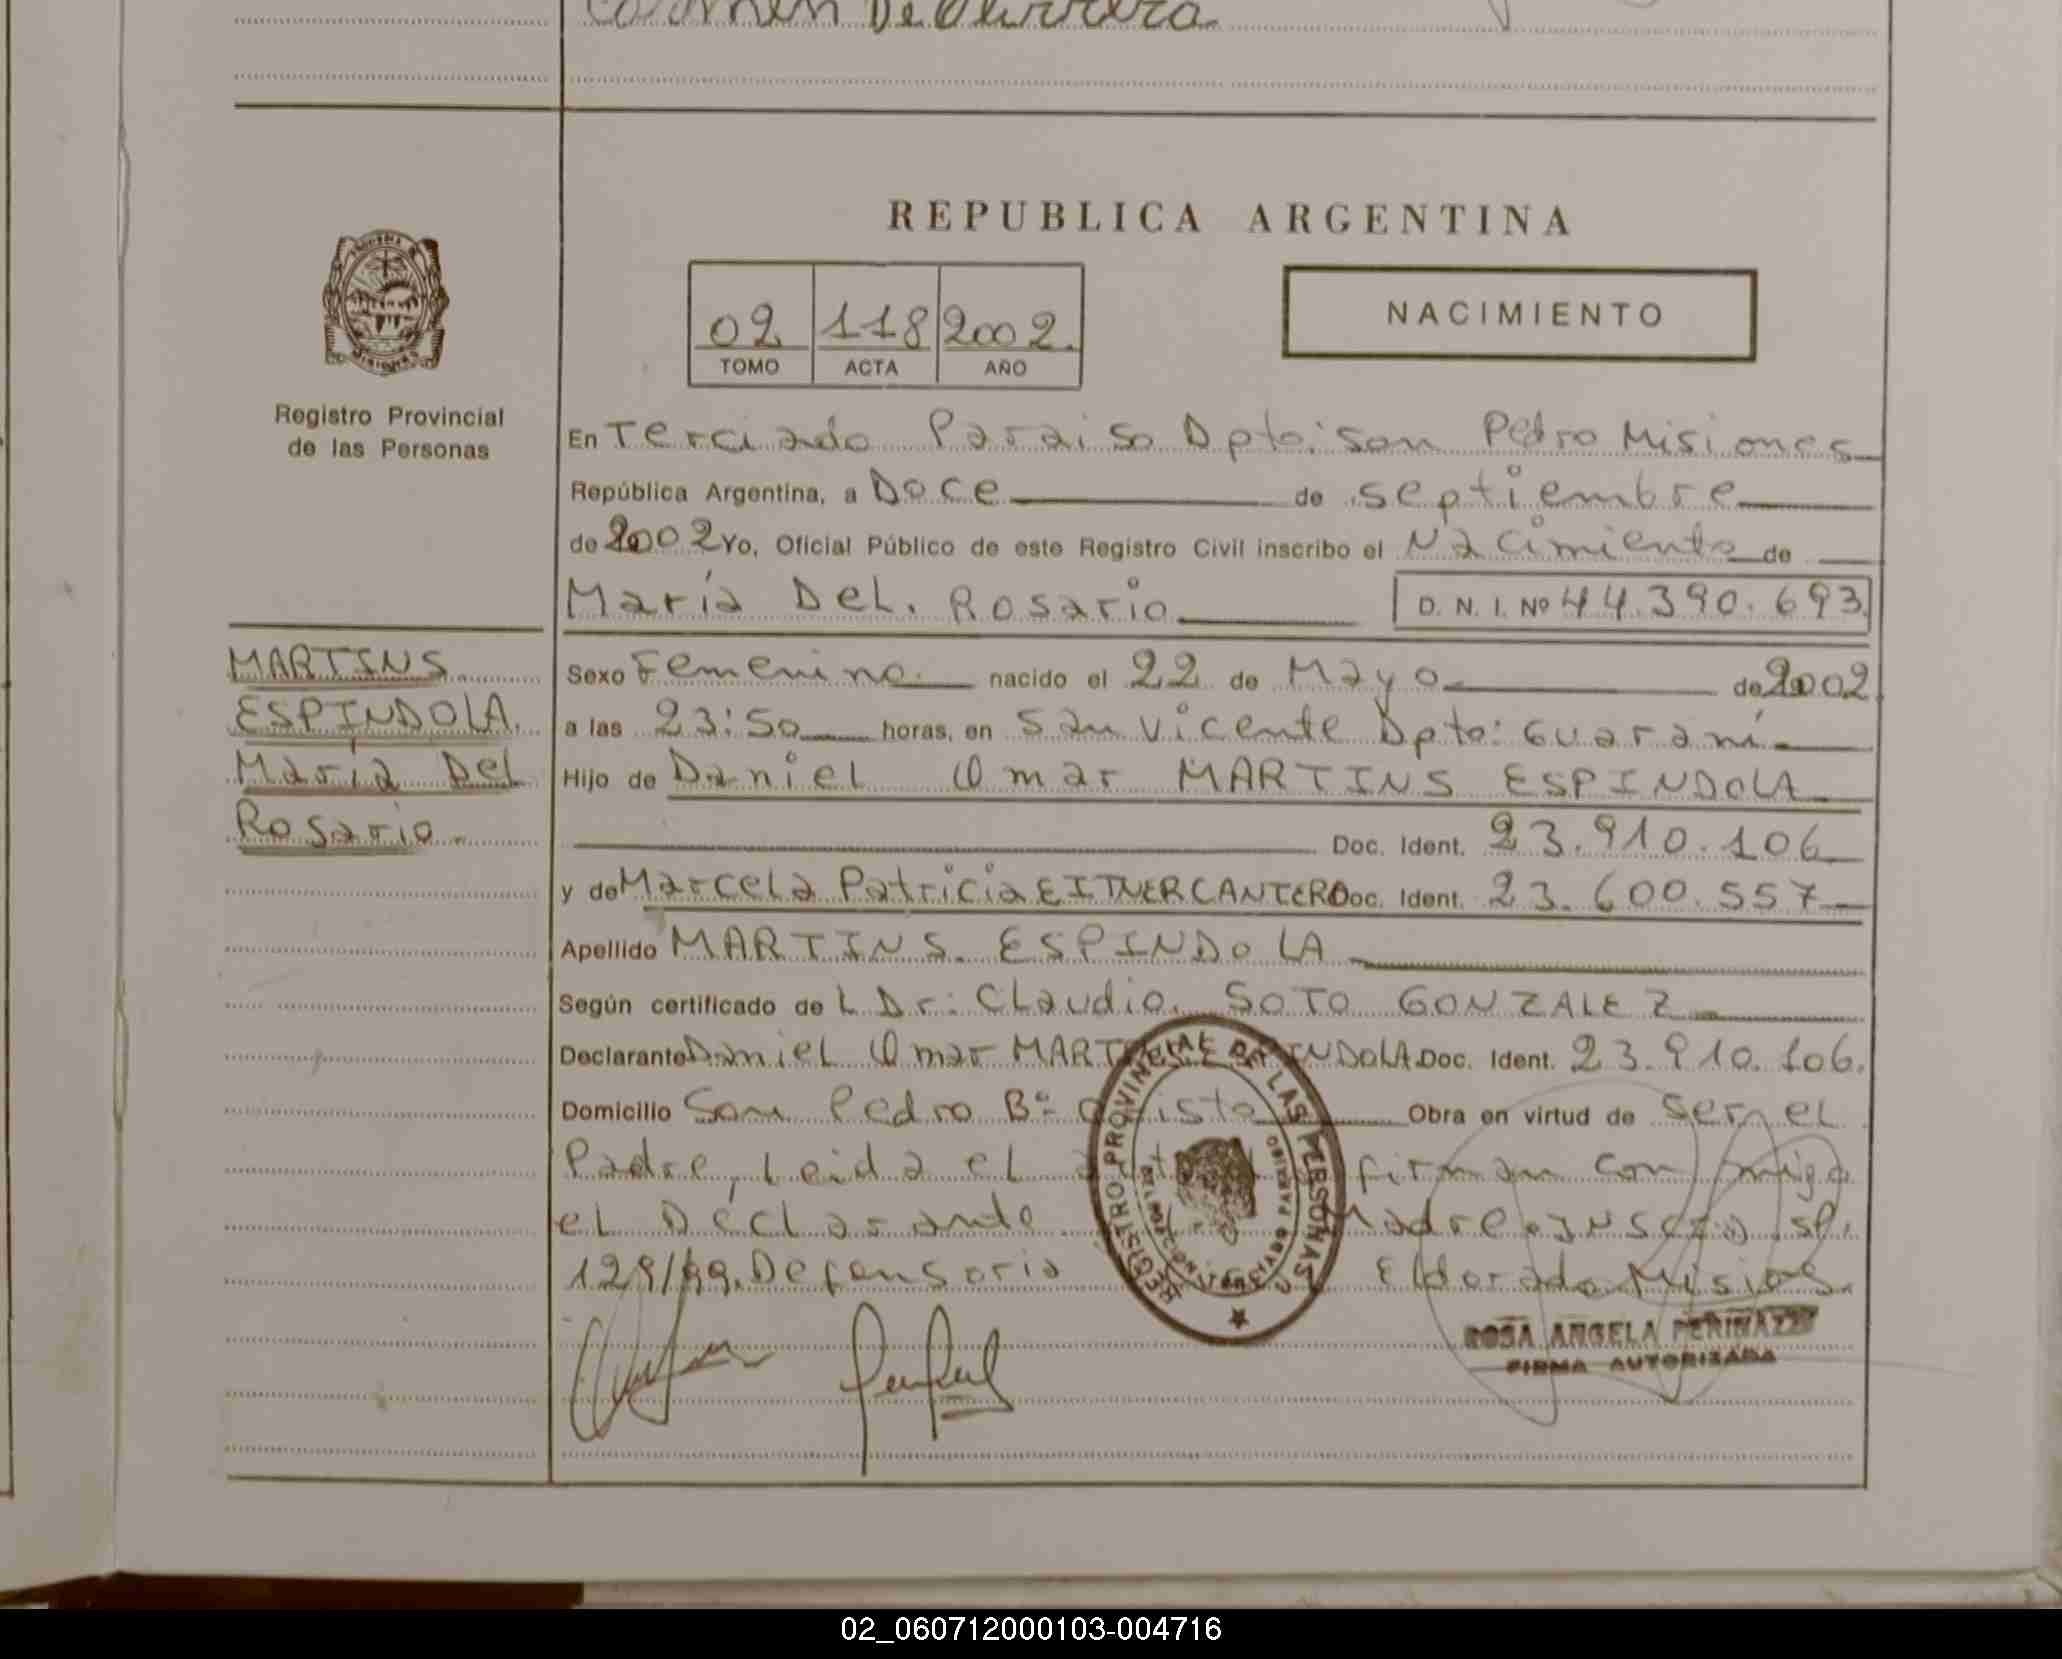 Carmen De Olivera
REPUBLICA ARGENTINA
02 118 2002.
TOMO ACTA AÑO
NACIMIENTO
Registro Provincial
de las Personas
En Terciado Paraiso Dpto: San Pedro Misiones
República Argentina, a Doce de septiembre
de 2002 Yo, Oficial Público de este Registro Civil inscribo el Nacimiento de
María Del. Rosario D. N. I. Nº 44.390.693.
MARTINS
ESPINDOLA.
María Del
Rosario.
Sexo Femenino. nacido el 22 de Mayo de 2002
a las 23:50 horas, en San Vicente Dpto: Guaraní
Hijo de Daniel Omar MARTINS ESPINDOLA
Doc. Ident. 23.910.106
y de Marcela Patricia EITNER CANTERO Doc. Ident. 23.600.557
Apellido MARTINS. ESPINDOLA
Según certificado de L Dr: Claudio. SOTO GONZALEZ
Declarante Daniel Omar MARTINS ESPINDOLA Doc. Ident. 23.910.106.
Domicilio San Pedro Bº Obra en virtud de ser el
Padre, Leida el firman conmigo
el Declarante Madre.
129/99. Defensoria Eldorado
REGISTRO PROVINCIAL DE LAS PERSONAS
ROSA ANGELA PERINAZZI
FIRMA AUTORIZADA
02_060712000103-004716